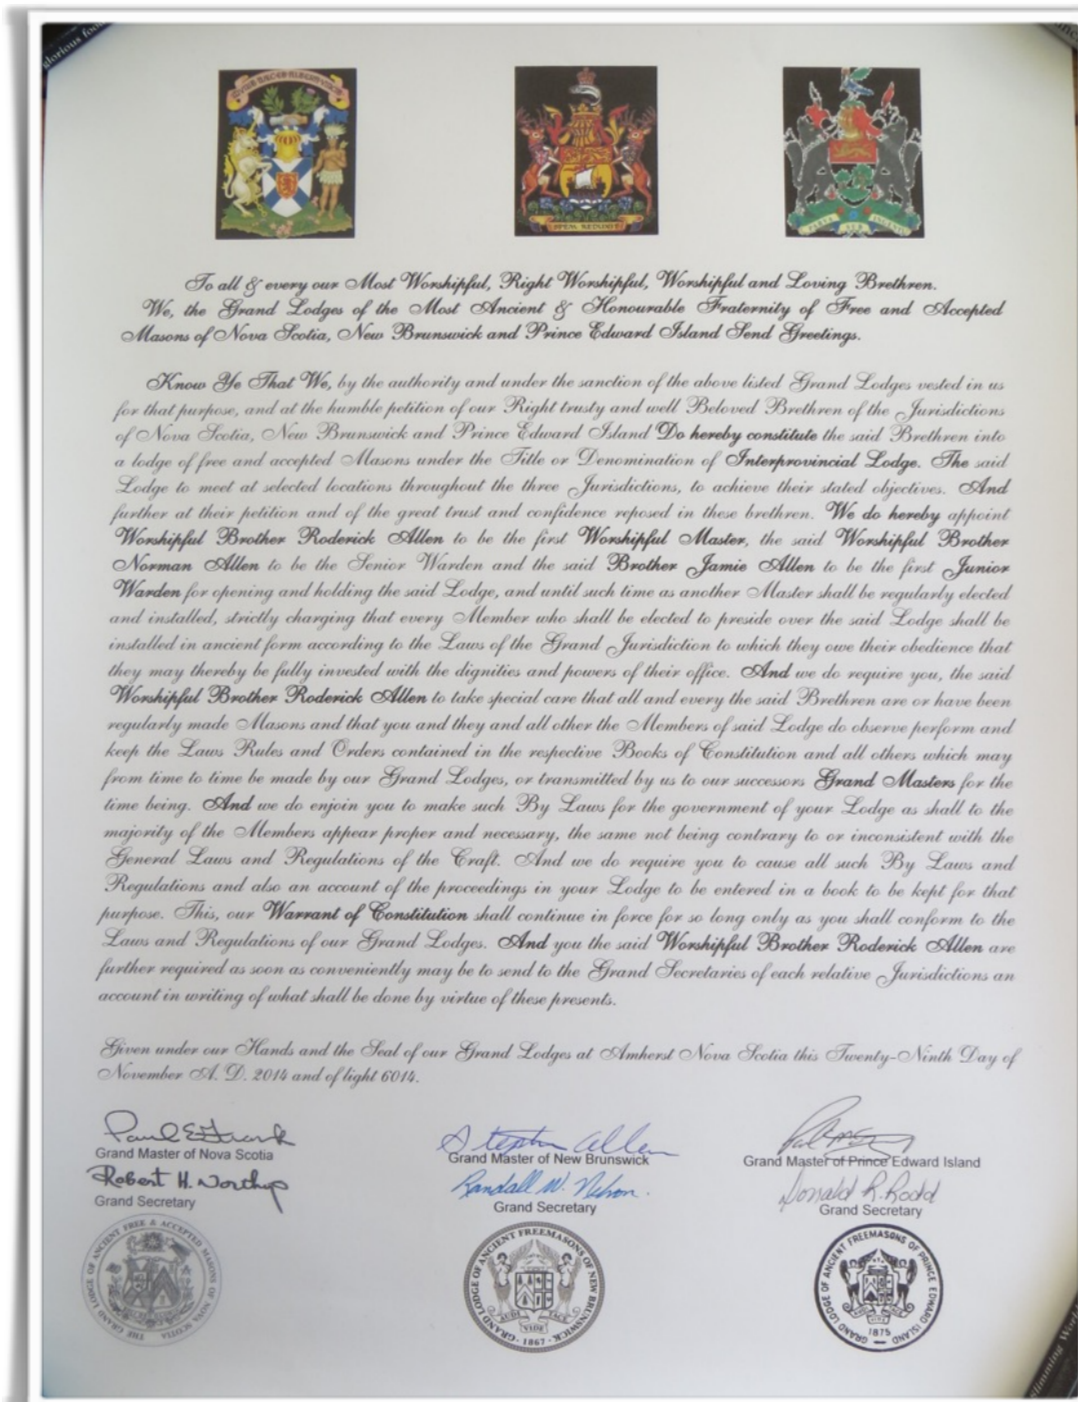 glorious foo
SPEM REDUXIT
PARVA SUB INGENTI
To all & every our Most Worshipful, Right Worshipful, Worshipful and Loving Brethren.
We, the Grand Lodges of the Most Ancient & Honourable Fraternity of Free and Accepted
Masons of Nova Scotia, New Brunswick and Prince Edward Island Send Greetings.
Know Ye That We, by the authority and under the sanction of the above listed Grand Lodges vested in us
for that purpose, and at the humble petition of our Right trusty and well Beloved Brethren of the Jurisdictions
of Nova Scotia, New Brunswick and Prince Edward Island Do hereby constitute the said Brethren into
a lodge of free and accepted Masons under the Title or Denomination of Interprovincial Lodge. The said
Lodge to meet at selected locations throughout the three Jurisdictions, to achieve their stated objectives. And
further at their petition and of the great trust and confidence reposed in these brethren. We do hereby appoint
Worshipful Brother Roderick Allen to be the first Worshipful Master, the said Worshipful Brother
Norman Allen to be the Senior Warden and the said Brother Jamie Allen to be the first Junior
Warden for opening and holding the said Lodge, and until such time as another Master shall be regularly elected
and installed, strictly charging that every Member who shall be elected to preside over the said Lodge shall be
installed in ancient form according to the Laws of the Grand Jurisdiction to which they owe their obedience that
they may thereby be fully invested with the dignities and powers of their office. And we do require you, the said
Worshipful Brother Roderick Allen to take special care that all and every the said Brethren are or have been
regularly made Masons and that you and they and all other the Members of said Lodge do observe perform and
keep the Laws Rules and Orders contained in the respective Books of Constitution and all others which may
from time to time be made by our Grand Lodges, or transmitted by us to our successors Grand Masters for the
time being. And we do enjoin you to make such By Laws for the government of your Lodge as shall to the
majority of the Members appear proper and necessary, the same not being contrary to or inconsistent with the
General Laws and Regulations of the Craft. And we do require you to cause all such By Laws and
Regulations and also an account of the proceedings in your Lodge to be entered in a book to be kept for that
purpose. This, our Warrant of Constitution shall continue in force for so long only as you shall conform to the
Laws and Regulations of our Grand Lodges. And you the said Worshipful Brother Roderick Allen are
further required as soon as conveniently may be to send to the Grand Secretaries of each relative Jurisdictions an
account in writing of what shall be done by virtue of these presents.
Given under our Hands and the Seal of our Grand Lodges at Amherst Nova Scotia this Twenty-Ninth Day of
November A. D. 2014 and of light 6014.
Paul E Frank
Grand Master of Nova Scotia
Robert H. Northup
Grand Secretary
THE GRAND LODGE OF ANCIENT FREE & ACCEPTED MASONS OF NOVA SCOTIA
Stephen Allen
Grand Master of New Brunswick
Randall W. Nelson.
Grand Secretary
GRAND LODGE OF ANCIENT FREEMASONS OF NEW BRUNSWICK
AUDI VIDE TACE
1867
Grand Master of Prince Edward Island
Donald R. Rodd
Grand Secretary
GRAND LODGE OF ANCIENT FREEMASONS OF PRINCE EDWARD ISLAND
1875